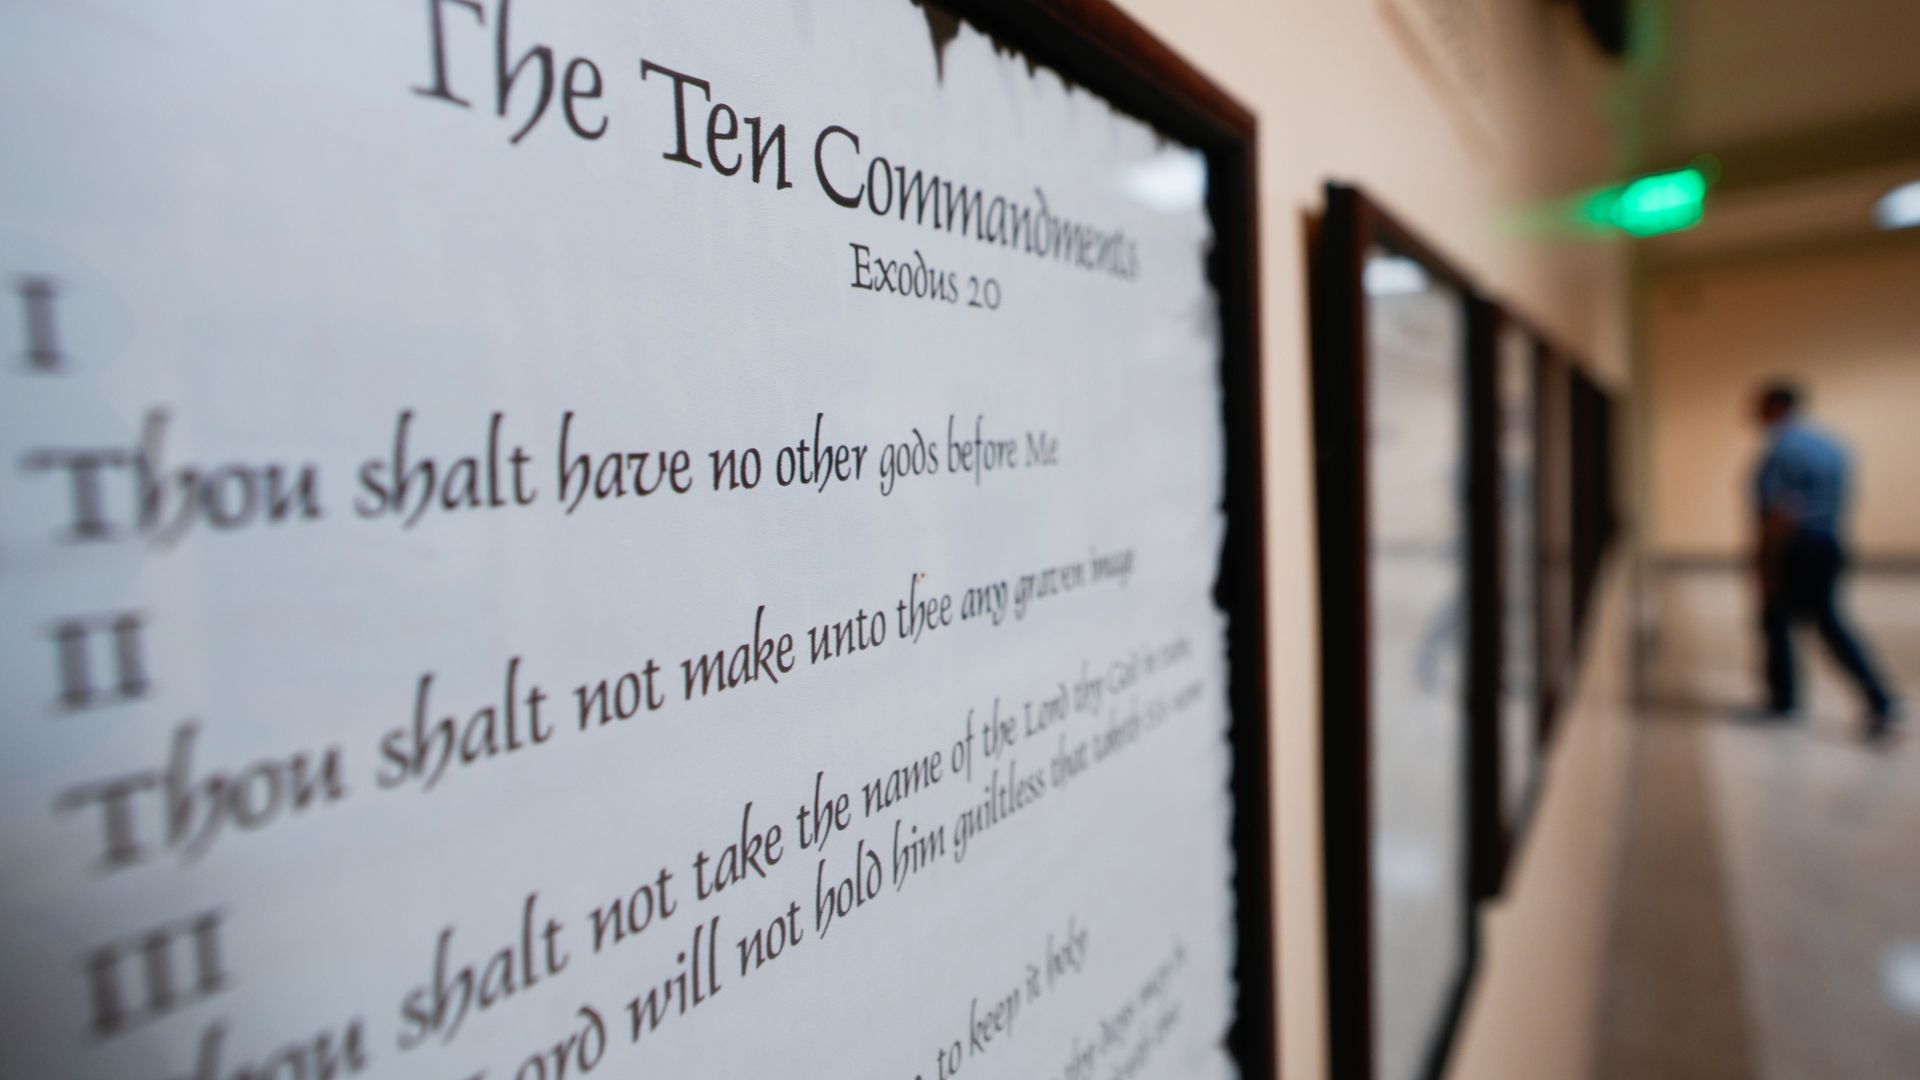 The Ten Commandments
Exodus 20
I
Thou shalt have no other gods before Me
II
Thou shalt not make unto thee any graven image
III
Thou shalt not take the name of the Lord thy God in vain,
Lord will not hold him guiltless that taketh His name
to keep it holy
thy days may